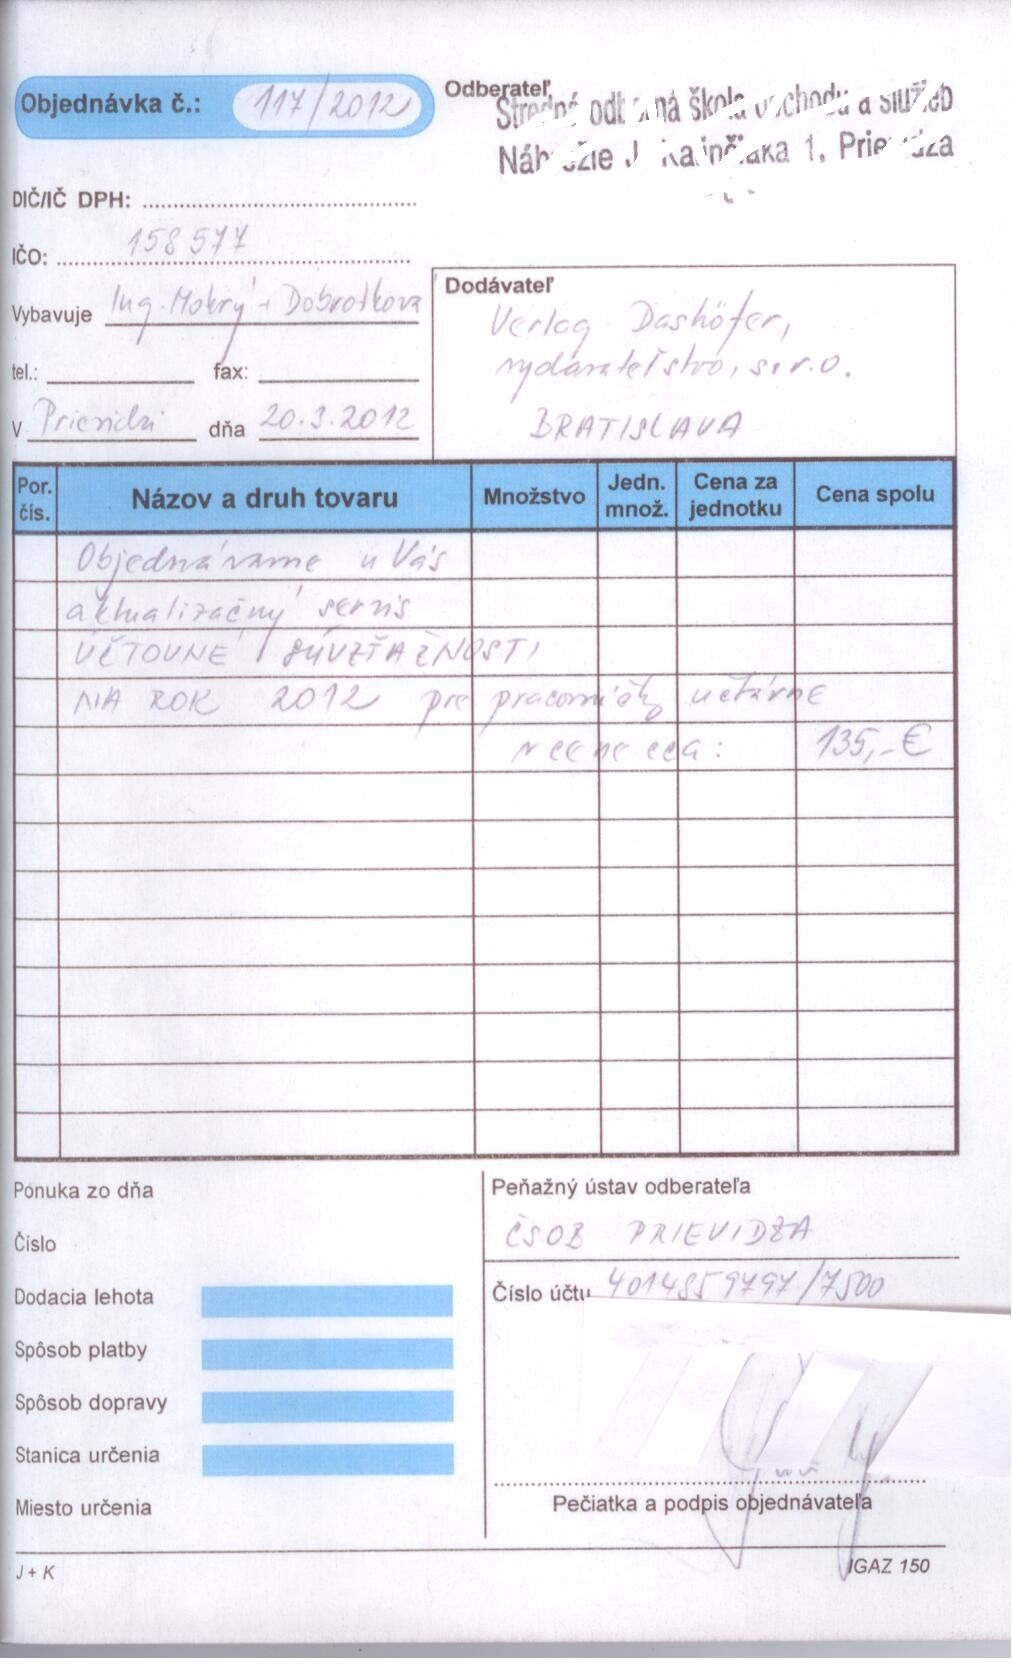 Objednávka č.: 117/2012
Odberateľ
Stredná odborná škola obchodu a služieb
Nábrežie J. Kalinčiaka 1, Prievidza
DIČ/IČ DPH:
IČO: 158577
Vybavuje Ing. Mokrý - Dobrotková
tel.: fax:
V Prievidzi dňa 20.3.2012
Dodávateľ
Verlag Dashöfer,
vydavateľstvo, s.r.o.
BRATISLAVA
Por. čís. Názov a druh tovaru Množstvo Jedn. množ. Cena za jednotku Cena spolu
Objednávame u Vás
aktualizačný servis
ÚČTOVNÉ SÚVZŤAŽNOSTI
NA ROK 2012 pre pracovníčky učtárne
v cene cca: 135,-€
Ponuka zo dňa
Číslo
Dodacia lehota
Spôsob platby
Spôsob dopravy
Stanica určenia
Miesto určenia
Peňažný ústav odberateľa
ČSOB PRIEVIDZA
Číslo účtu 4014859797/7500
Pečiatka a podpis objednávateľa
J + K
IGAZ 150